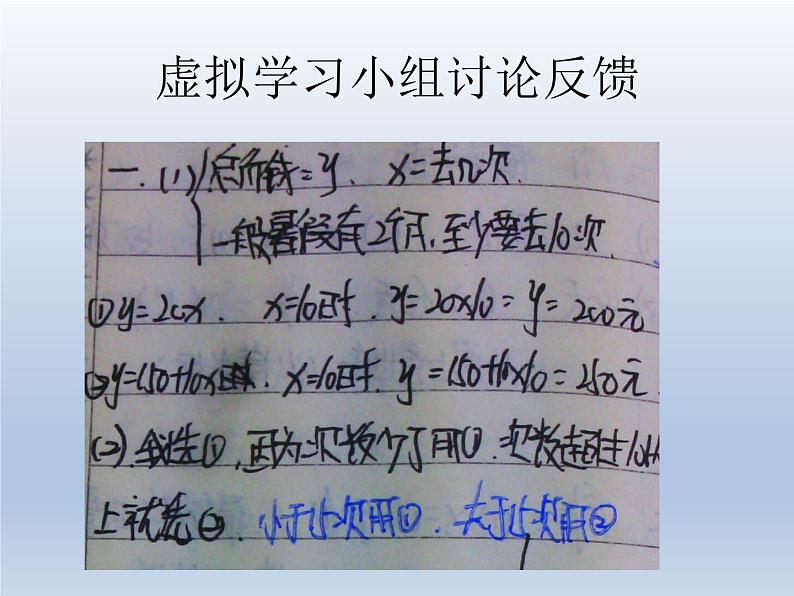 虚拟学习小组讨论反馈
一.(1) 总价钱=y、 x=去几次.
一般暑假有2个月,至少要去10次.
①y=20x. x=10时.y=20×10=y=200元
②y=150+10x. x=10时.y=150+10×10=250元.
(2).我选①,因为次数少了用①.次数超过10次以
上就选②.小于15次用①.大于15次用②